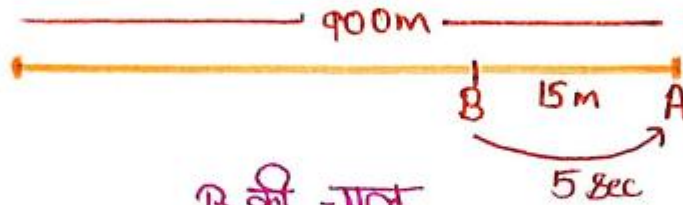 900m
B 15m A
5 sec
B की चाल